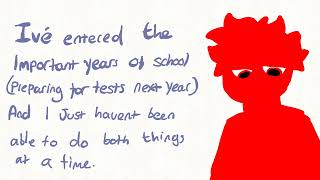 Ivé entered the
important years of school
(preparing for tests next year)
And I Just havent been
able to do both things
at a time.